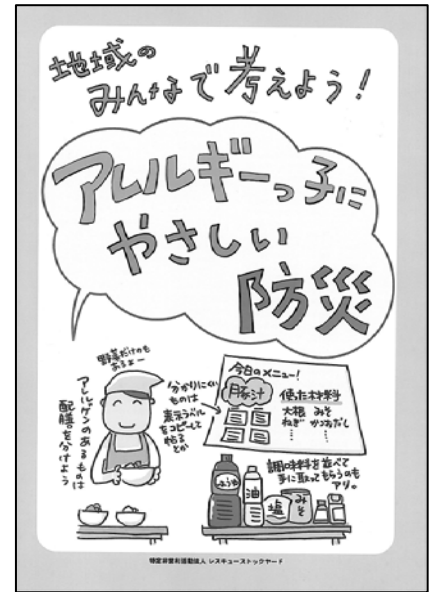 地域の
みんなで考えよう!
アレルギーっ子に
やさしい
防災
野菜だけのも
あるよー
アレルゲンのあるものは
配膳を分けよう
分かりにくい
ものは
表示ラベル
をコピーして
貼る
とか
今日のメニュー!
豚汁
使った材料
大根 みそ
ねぎ かつおだし
調味料を並べて
手に取って
もらうのも
アリ。
しょうゆ
油
塩
みそ
特定非営利活動法人 レスキューストックヤード